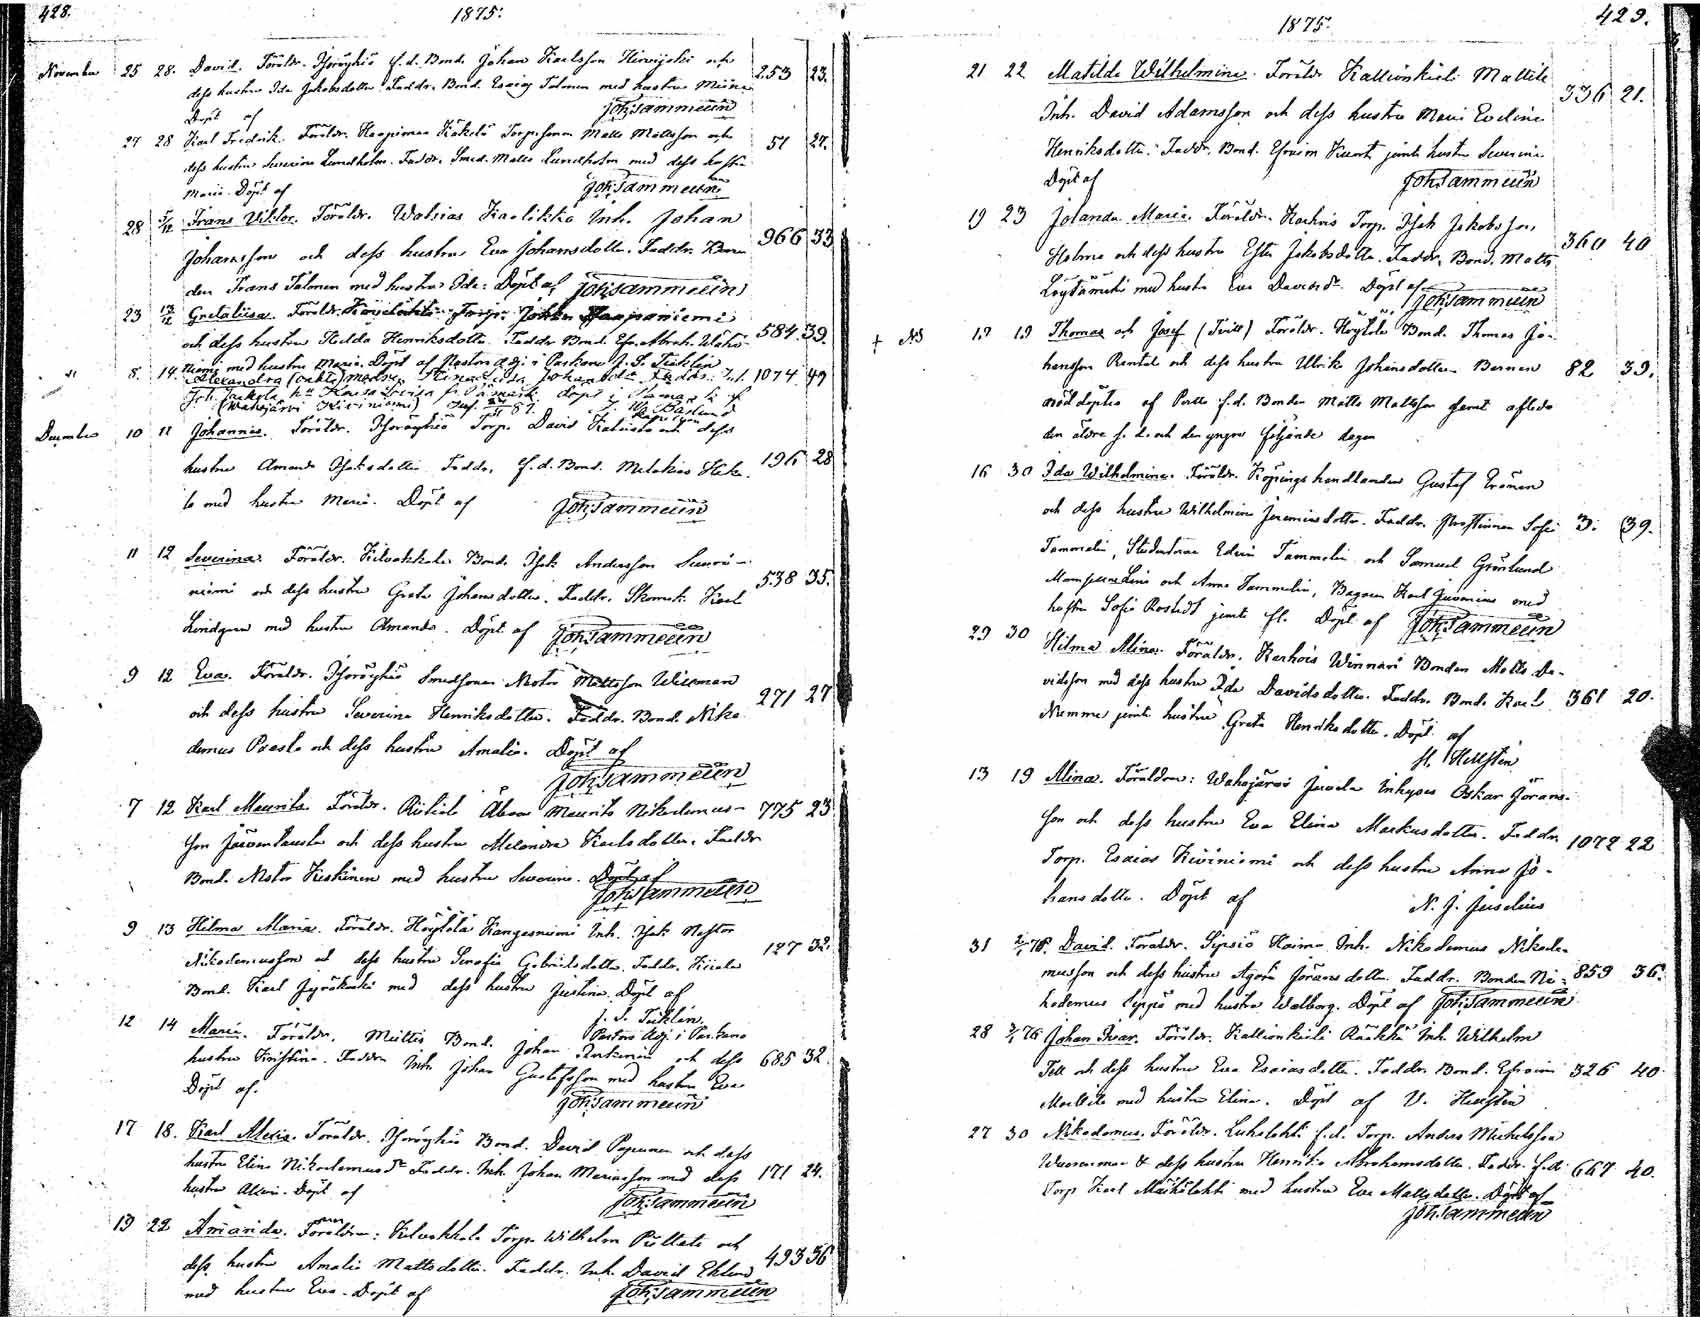 428.
1875.
November 25 28. David. Föräldr. Isoröyhiö f.d. Bond. Johan Karlsson Hirvijoki och 253 23.
dess hustru Ida Jakobsdotter. Faddr. Bond. Esaias Talonen med hustru Miina
Döpt af Joh. Tammelin
27 28 Karl Fredrik. Föräldr. Haapimaa Käkelä Torp.sonen Matts Mattsson och 51 27.
dess hustru Severina Lundholm. Faddr. Smed. Matts Lundholm med dess hustru
Maria. Döpt af Joh. Tammelin
28 5/12 Frans Viktor. Föräldr. Watsias Inh. Johan 966 33
Johansson och dess hustru Eva Johansdotter. Faddr. Bon-
den Frans Talonen med hustru Ida. Döpt af Joh. Tammelin
23 12/12 Gretaliisa. Föräldr. Torp. Jakko Haapaniemi 584 39.
och dess hustru Hedda Henriksdotter. Faddr. Bond. Efr. Abrah. Wähä-
niemi med hustru Maria. Döpt af Pastors adj. i Parkano J. S. Tuklin
" 8. 14. Alexandra (oäkta) modren Stina Lisa Johansdr. Faddr. Inh. 1074 49
Joh. Jaskola, hu Kaisa Lovisa fr. Påmark. Döpt i Påmark af
(Wahojärvi Kiviniemi) F. W. Baslund
December 10 11 Johannes. Föräldr. Isoröyhiö Torp. David Kaluista och dess 196 28
hustru Amanda Isaksdotter. Faddr. f.d. Bond. Melakias Heke-
lä med hustru Maria. Döpt af Joh. Tammelin
11 12 Severina. Föräldr. Kilvakkala Bond. Isak Andersson Suoni- 538 35.
niemi och dess hustru Greta Johansdotter. Faddr. Skomak. Karl
Lindgren med hustru Amanda. Döpt af Joh. Tammelin
9 12 Eva. Föräldr. Isoröyhiö Smedsonen Nestor Mattsson Willman 271 27
och dess hustru Severina Henriksdotter. Faddr. Bond. Niko-
demus Paasto och dess hustru Amalia. Döpt af
Joh. Tammelin
7 12 Karl Maurits. Föräldr. Riitiala Åboen Maurits Nikodemus- 775 23
son Järventausta och dess hustru Melandra Karlsdotter. Faddr.
Bond. Nestor Keskinen med hustru Severina. Döpt af
Joh. Tammelin
9 13 Hilma Maria. Föräldr. Höytölä Kangasniemi Inh. Isak Nestor 127 32.
Nikodemusson och dess hustru Serafia Gabrielsdotter. Faddr.
Bond. Karl Jyräkoski med dess hustru Justina. Döpt af
J. S. Tuklin,
Pastors Adj. i Parkano
12 14 Maria. Föräldr. Mültis Bond. Johan Penkinen och dess 685 32.
hustru Kristina. Faddr. Inh. Johan Gustafsson med hustru Eva
Döpt af. Joh. Tammelin
17 18. Karl Alexis. Föräldr. Isoröyhiö Bond. David Papunen och dess 171 24.
hustru Elina Nikodemusdr. Faddr. Inh. Johan Mariasson med dess
hustru Albin. Döpt af Joh. Tammelin
19 22 Amanda. Föräldrar: Kilvakkala Torp. Wilhelm Piiltala och 493 36
dess hustru Amalia Mattsdotter. Faddr. Inh. David Eklund
med hustru Eva. Döpt af Joh. Tammelin
429.
1875.
21 22 Matilda Wilhelmina. Föräldr. Kallionkieli Mattila 336 21.
Inh. David Adamsson och dess hustru Maria Evelina
Henriksdotter. Faddr. Bond. Efraim Kuort jemte hustru Severina
Döpt af Joh. Tammelin
19 23 Jolanda Maria. Föräldr. Karhois Torp. Isak Jakobsson 360 40
Holma och dess hustru Ester Jakobsdotter. Faddr. Bond. Matts
Löytämäki med hustru Eva Davidsdr. Döpt af Joh. Tammelin
+ NB 17 19 Thomas och Josef (Tvill.) Föräldr. Höytölä Bond. Thomas Jo-
hansson Rantal och dess hustru Ulrika Johansdotter. Barnen 82 39.
nöddöptes af Pertto f.d. Bonden Matts Mattsson samt afledo
den äldre s. d. och den yngre följande dagen
16 30 Ida Wilhelmina. Föräldr. Köpingshandlanden Gustaf Erönen
och dess hustru Wilhelmina Jeremiasdotter. Faddr. Prostinnan Sofie 3. (39.
Tammelin, Studenterne Edvin Tammelin och Samuel Grönlund
Mamseller Lina och Anna Tammelin, Bagaren Karl Juvonius med
hustru Sofia Rostedt jemte fl. Döpt af Joh. Tammelin
29 30 Hilma Alina. Föräldr. Karhois Winnari Bonden Matts Da-
vidsson med dess hustru Ida Davidsdotter. Faddr. Bond. Karl 361 20.
Niemme jemte hustru Greta Henriksdotter. Döpt af
H. Hellstén
13 19 Alina. Föräldrar: Wahojärvi Juvela Inhyses Oskar Görans-
son och dess hustru Eva Elina Markusdotter. Faddr. 1072 22
Torp. Esaias Kiviniemi och dess hustru Anna Jo-
hansdotter. Döpt af N. J. Juselius
31 2/1 76. David. Föräldr. Sipsiö Hoimo Inh. Nikodemus Nikode- 859 36.
musson och dess hustru Agata Göransdotter. Faddr. Bonden Ni-
kodemus Sipsiö med hustru Walborg. Döpt af Joh. Tammelin
28 2/1 76 Johan Ivar. Föräldr. Kallionkieli Räikkä Inh. Wilhelm
Tell och dess hustru Eva Esaiasdotter. Faddr. Bond. Efraim 326 40.
Mattila med hustru Elina. Döpt af V. Hellstén
27 30 Nikodemus. Föräldr. Luhalahti f.d. Torp. Anders Michelsson
Wuorenmaa & dess hustru Henrika Abrahamsdotter. Faddr. f.d. 667 40.
Torp. Karl Maihälahti med hustru Eva Mattsdotter. Döpt af
Joh. Tammelin